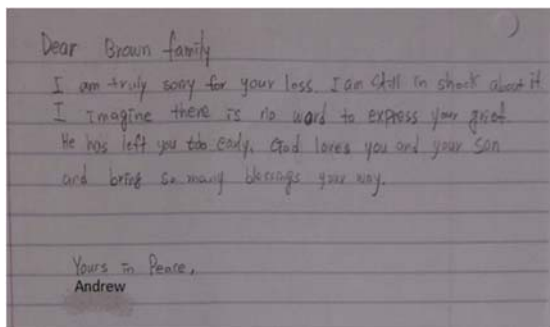 Dear Brown family
I am truly sorry for your loss. I am still in shock about it
I imagine there is no word to express your grief.
He has left you too early. God loves you and your son
and bring so many blessings your way.
Yours in Peace,
Andrew